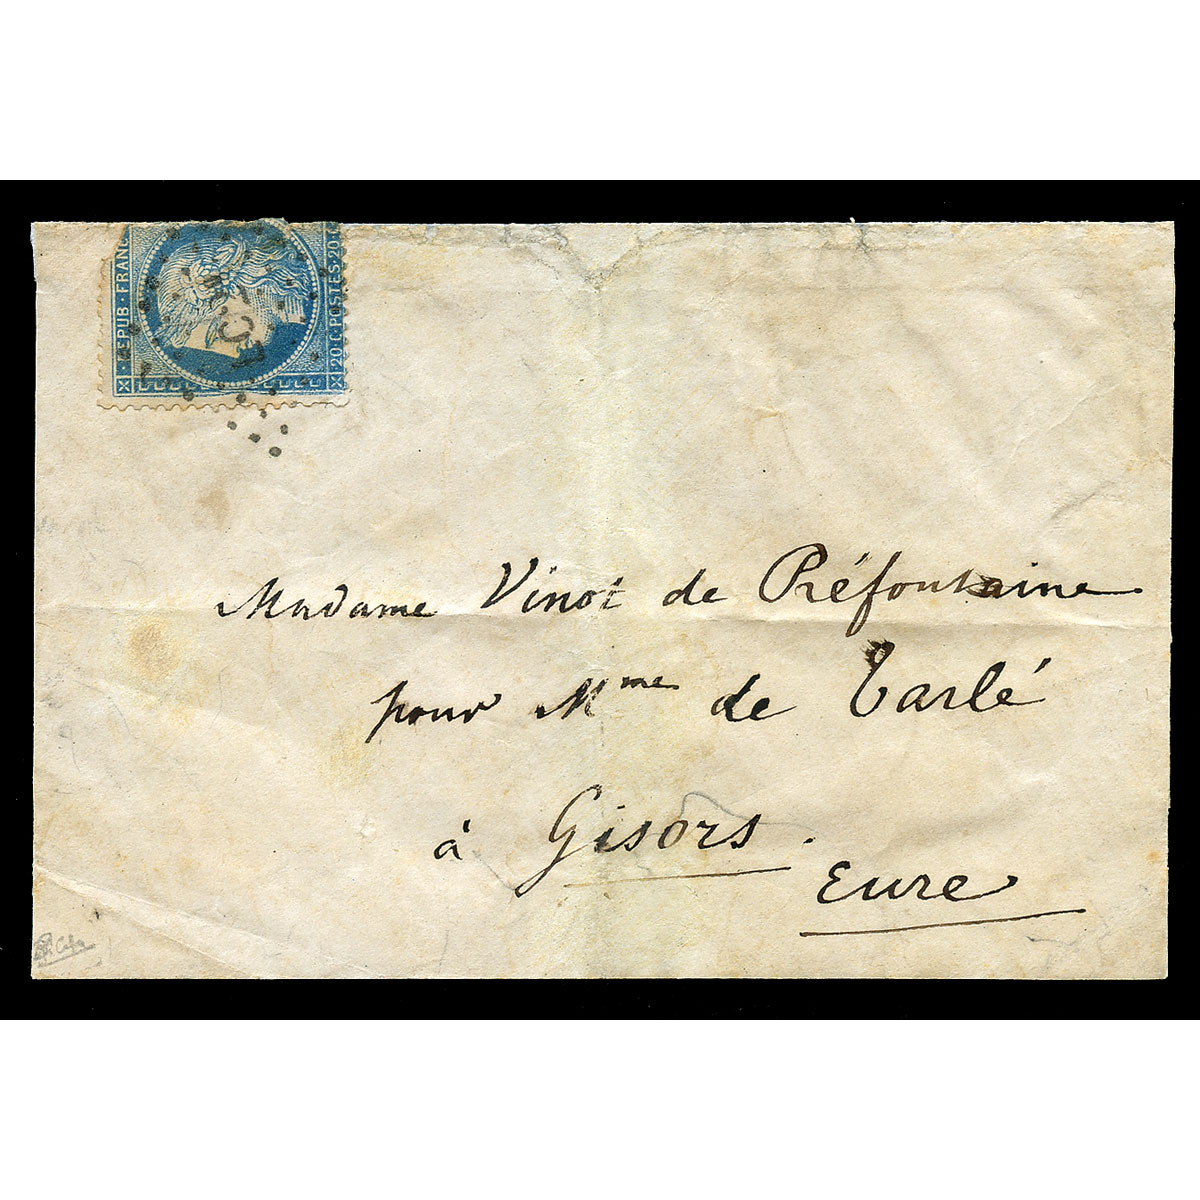 REPUB · FRANC
20 · C · POSTES · 20 · C
Madame Vinot de Préfontaine
pour Mme de Tarlé
à Gisors.
Eure